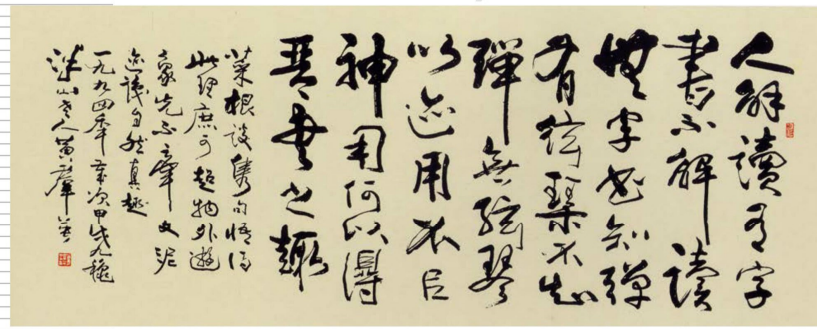 人解讀有字
書不解讀
無字書知彈
有絃琴不知
彈無絃琴
以迹用不以
神用何以得
琴書之趣
菜根談雋句悟得
此理庶可超物外遊
象先不牽文泥
迹識自然真趣
一九九四年歲次甲戌九龝
山老人黃